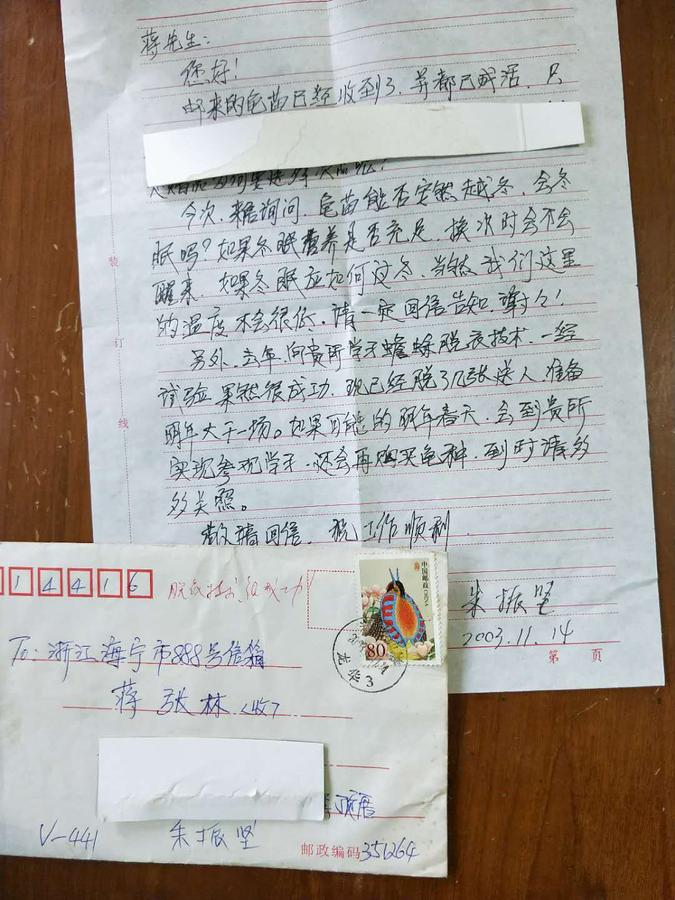 蒋先生：
您好！
邮来的龟苗已经收到了，并都已成活，只
今次，来信询问，龟苗能否安然越冬，会冬
眠吗？如果冬眠营养是否充足，换次时会不会
醒来，如果冬眠应如何过冬，当然我们这里
的温度不会很低，请一定回信告知，谢了！
另外，去年向贵所学习蟾蜍脱衣技术，一经
试验果然很成功，现已经脱了几张送人，准备
明年大干一场。如果可能的明年春天，会到贵所
实现参观学习，还会再购买龟种，到时请多
多关照。
敬请回信，祝工作顺利
朱振坚
2003.11.14
第 页
装
订
线
14416
脱衣技术很成功
中国邮政
80
To：浙江海宁市888号信箱
蒋张林（收）
V-441
朱振坚
邮政编码351264